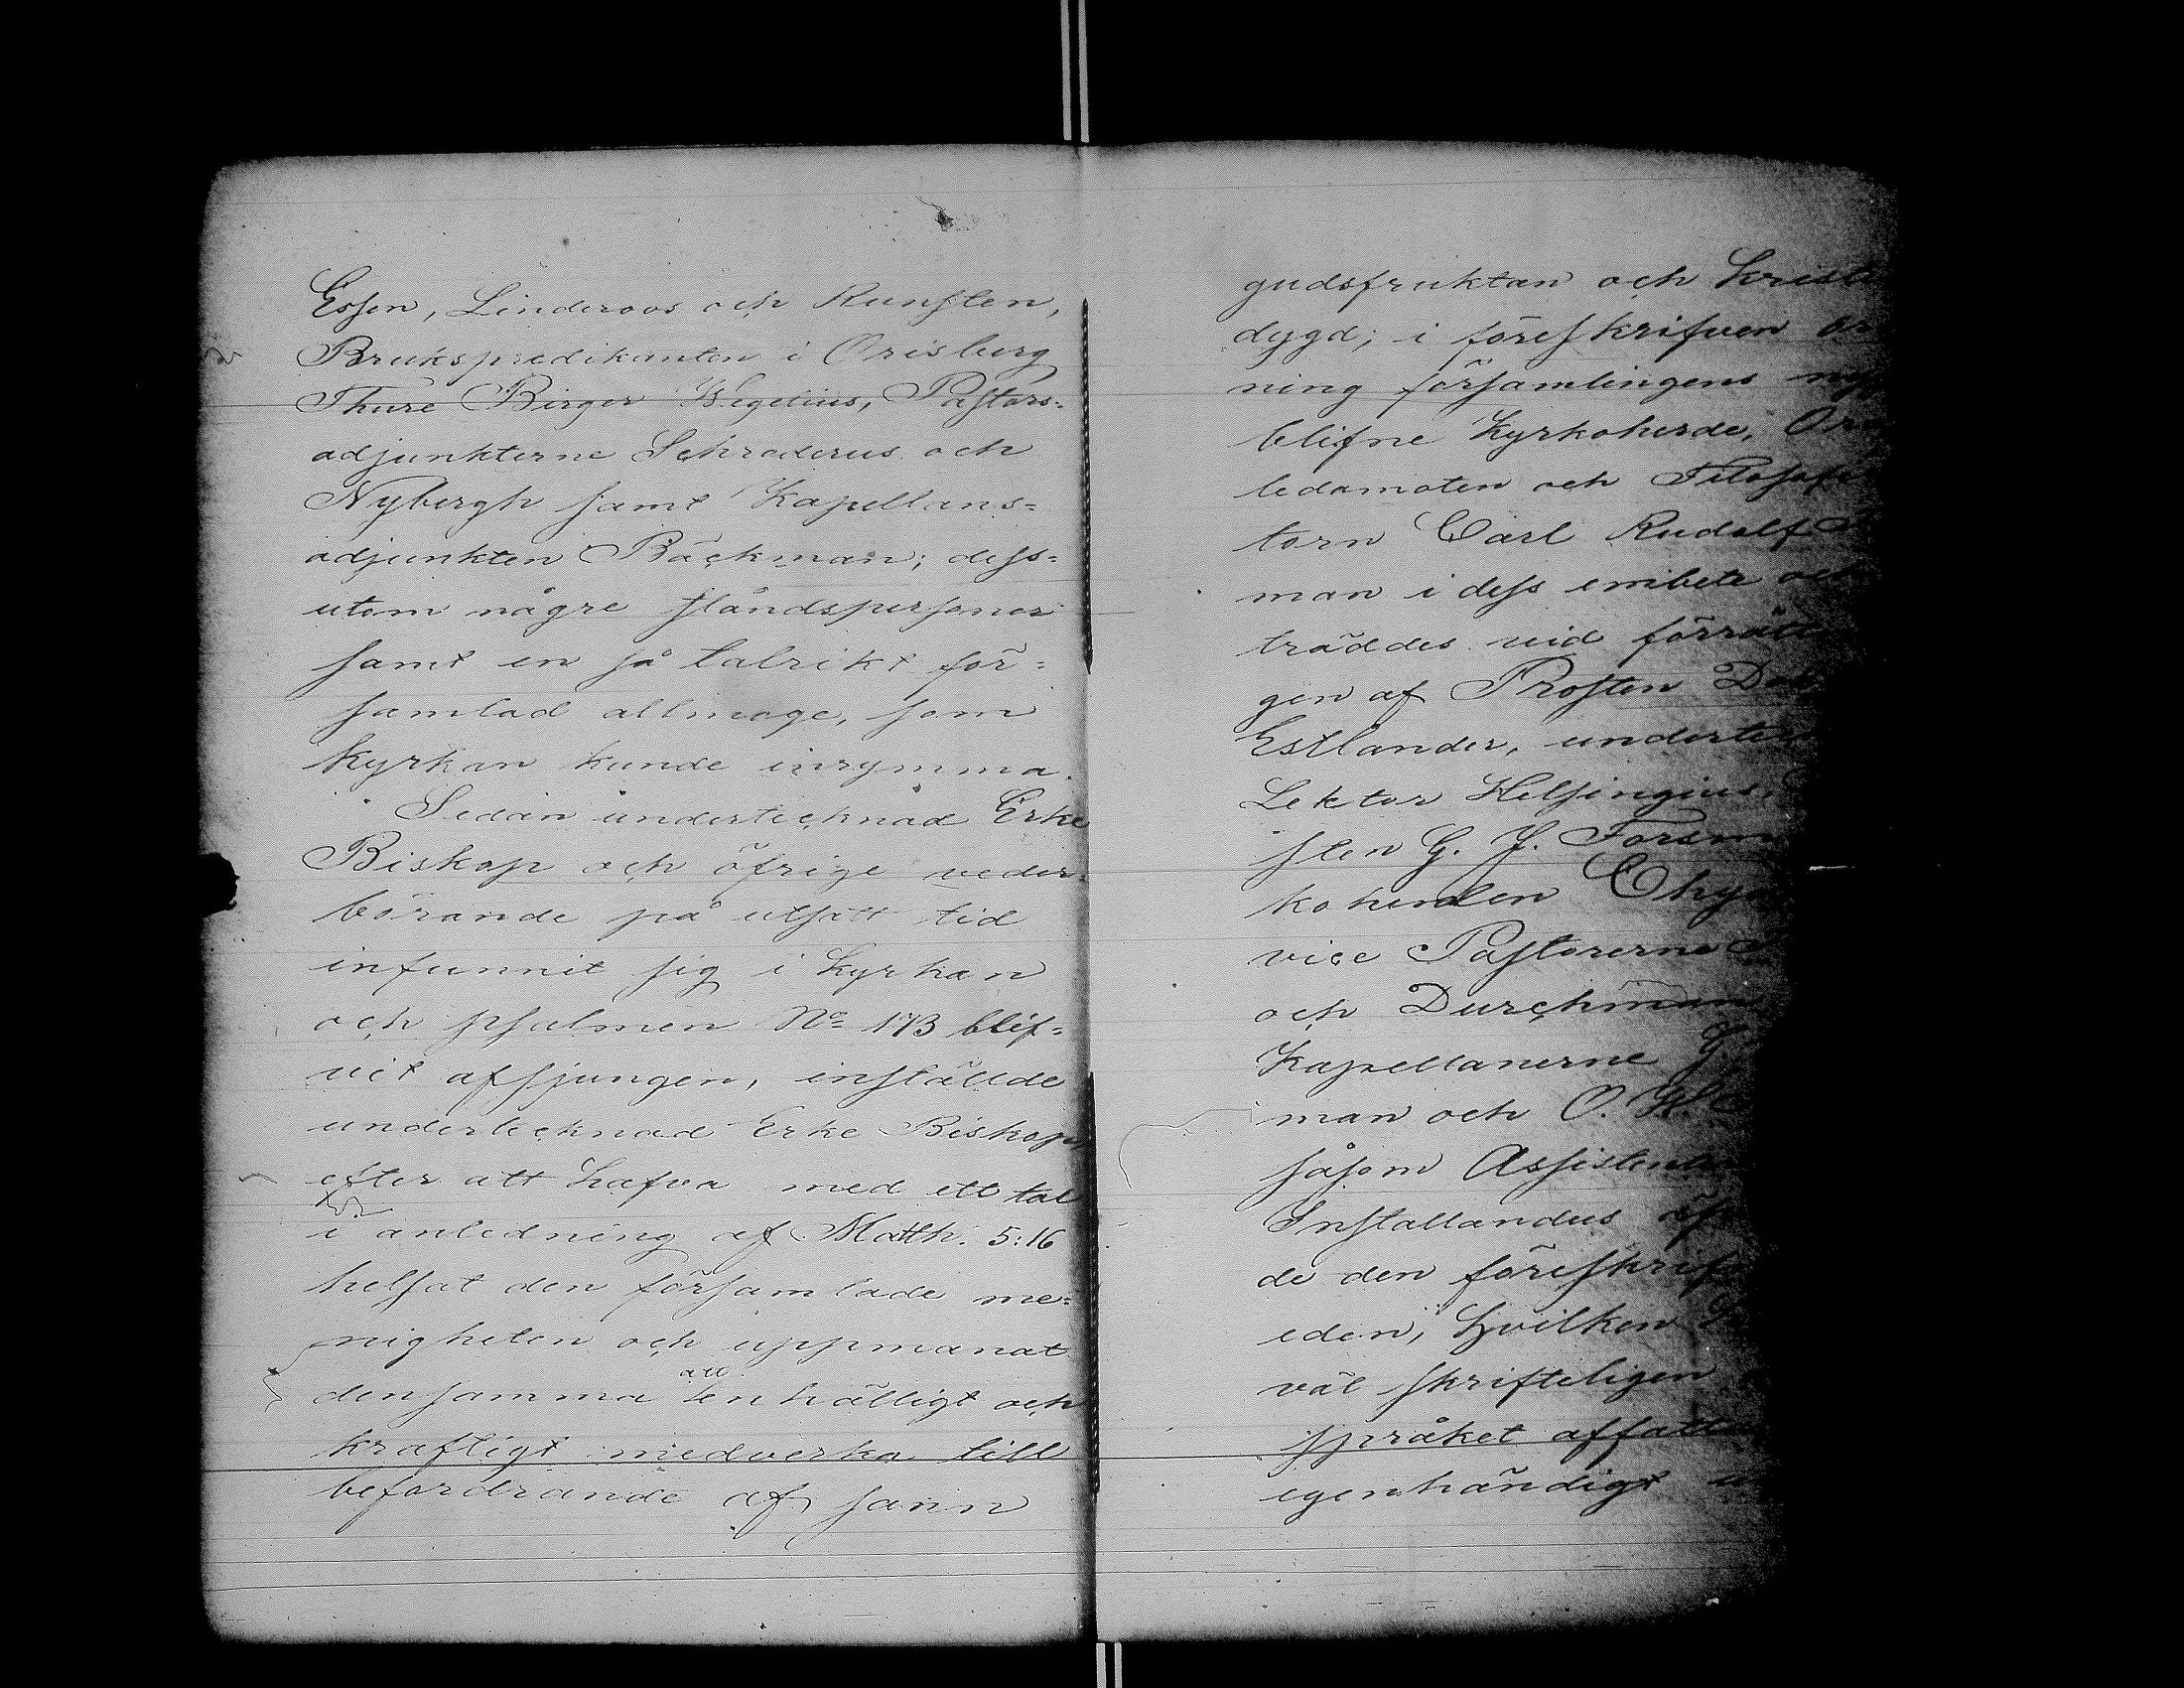 Essen, Linderoos och Runsten,
Brukspredikanten i Orisberg
Thure Birger Wegelius, Pastors-
adjunkterne Schroderus och
Nybergh samt Kapellans-
adjunkten Bäckman; dess-
utom någre ståndspersoner
samt en så talrikt för-
samlad allmoge, som
kyrkan kunde inrymma.
Sedan undertecknad Erke
Biskop och öfrige veder-
börande på utsatt tid
infunnit sig i kyrkan
och psalmen No 173 blif-
vit afsjungen, inställde
undertecknad Erke Biskop,
efter att hafva med ett tal
i anledning af Matth. 5:16
helsat den församlade me-
nigheten och uppmanat
densamma att enhälligt och
kraftigt medverka till
befordrande af sann
gudsfruktan och
dygd; i föreskrifven
ning församlingens
blifne Kyrkoherde,
ledamoten och
torn Carl Rudolf
man i dess embete
träddes vid
gen af Prosten
Estlander,
Lektor Helsingius,
sten G. J.
koherden
vice Pastorerne
och Durchman
Kapellanerne
man och O. W.
såsom
Installandus
de den
eden, hvilken
väl skrifteligen
språket
egenhändigt